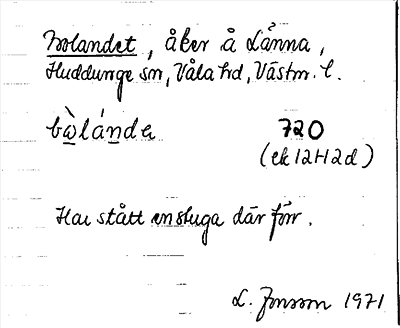 Bolandet, åker å Länna,
Huddunge sn, Våla hd, Västm. l.
bὼlánda 720
(ek 12H2d)
Har stått en stuga där förr.
L. Jonsson 1971